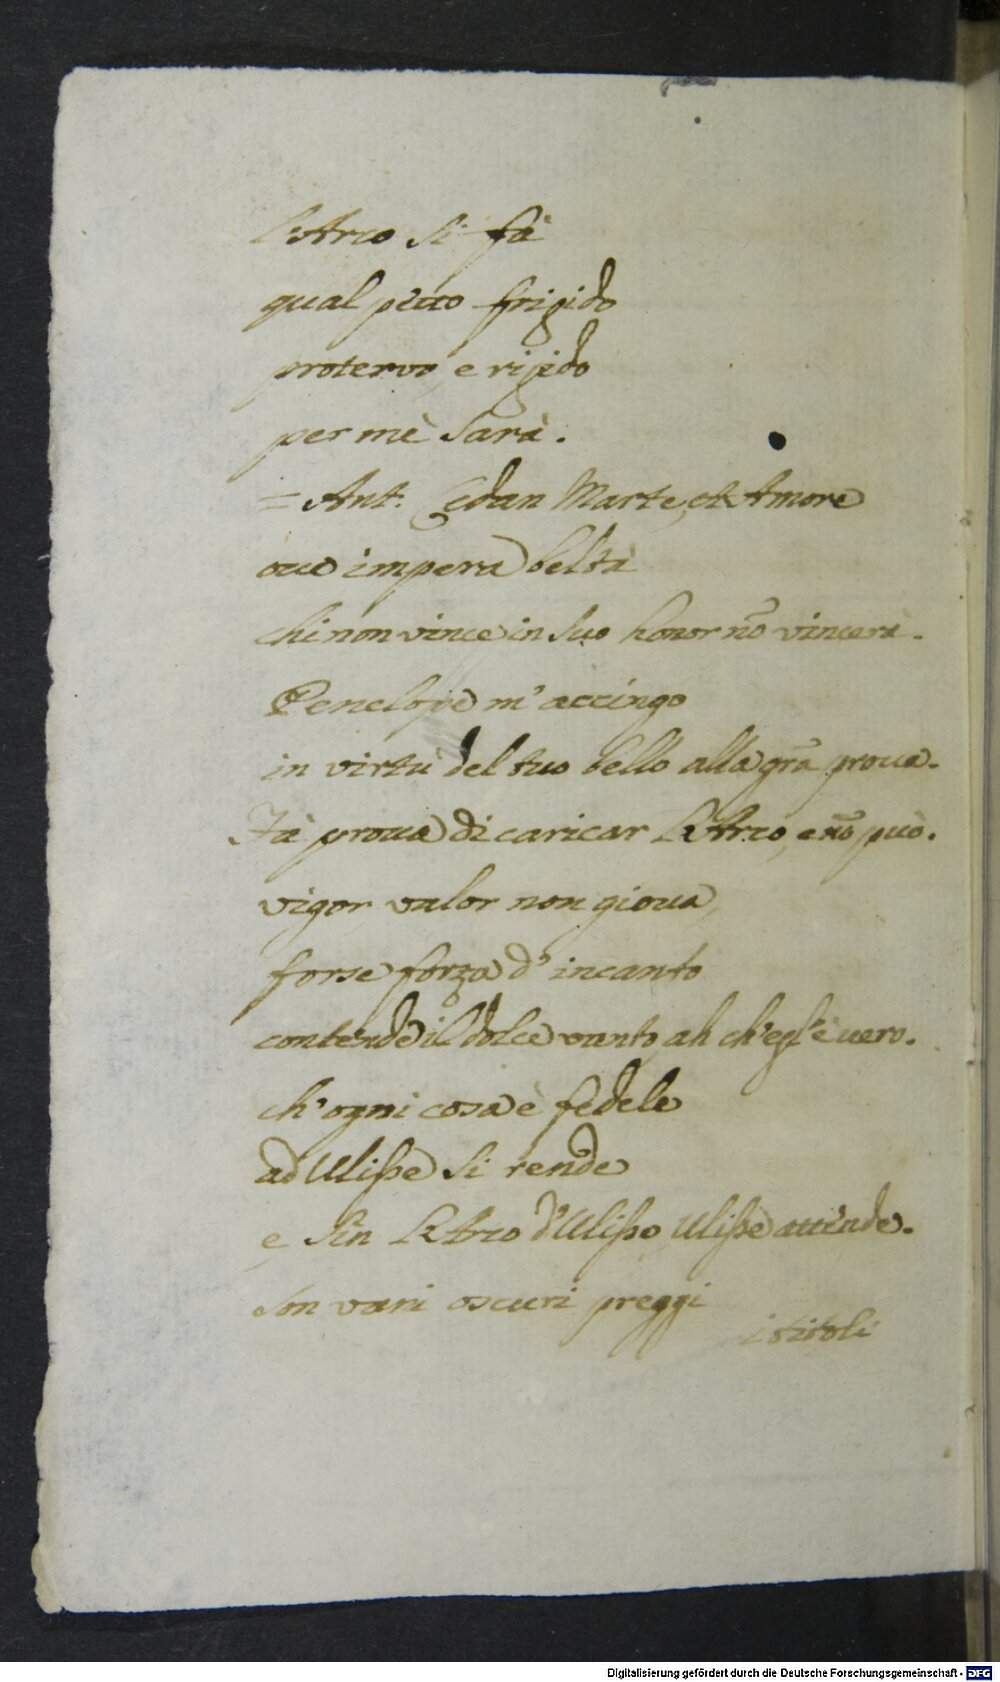 l'Arco si fà
qual petto frigido
protervo, e rigido
per mè sarà.
= Ant. Cedan Marte, et Amore
oue impera beltà
chi non vince in suo honor nō vincerà.
Penelope m'accingo
in virtù del tuo bello alla grā proua.
Fà proua di caricar l'Arco, e nō può.
vigor, valor non gioua,
forse forza d'incanto
contende il dolce vanto, ah ch'egl'è uero.
ch'ogni cosa è fedele
ad Ulisse si rende
e sin l'Arco d'Ulisse, Ulisse attende.
son vani oscuri preggi
i titoli
Digitalisierung gefördert durch die Deutsche Forschungsgemeinschaft - DFG